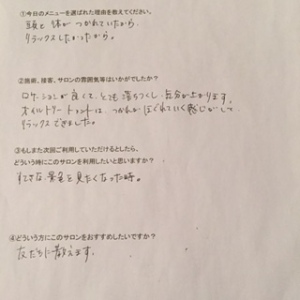 ①今日のメニューを選ばれた理由を教えてください。
頭も体がつかれていたから、
リラックスしたかったから。
②施術、接客、サロンの雰囲気等はいかがでしたか?
ロケーションが良くて、とても落ちつくし、気分が上がります。
オイルトリートメントは、つかれがほぐれていく感じがして
リラックスできました。
③もしまた次回ご利用していただけるとしたら、
どういう時にこのサロンを利用したいと思いますか?
すてきな景色を見たくなった時。
④どういう方にこのサロンをおすすめしたいですか?
友だちに教えます。